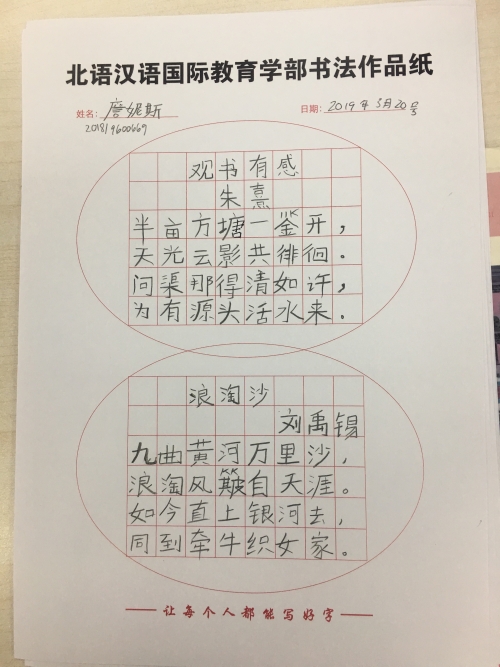 北语汉语国际教育学部书法作品纸
姓名: 詹妮斯 日期: 2019年3月20日
201819600669
观书有感
朱熹
半亩方塘一鉴开,
天光云影共徘徊。
问渠那得清如许,
为有源头活水来.
浪淘沙
刘禹锡
九曲黄河万里沙,
浪淘风簸自天涯。
如今直上银河去,
同到牵牛织女家。
让每个人都能写好字